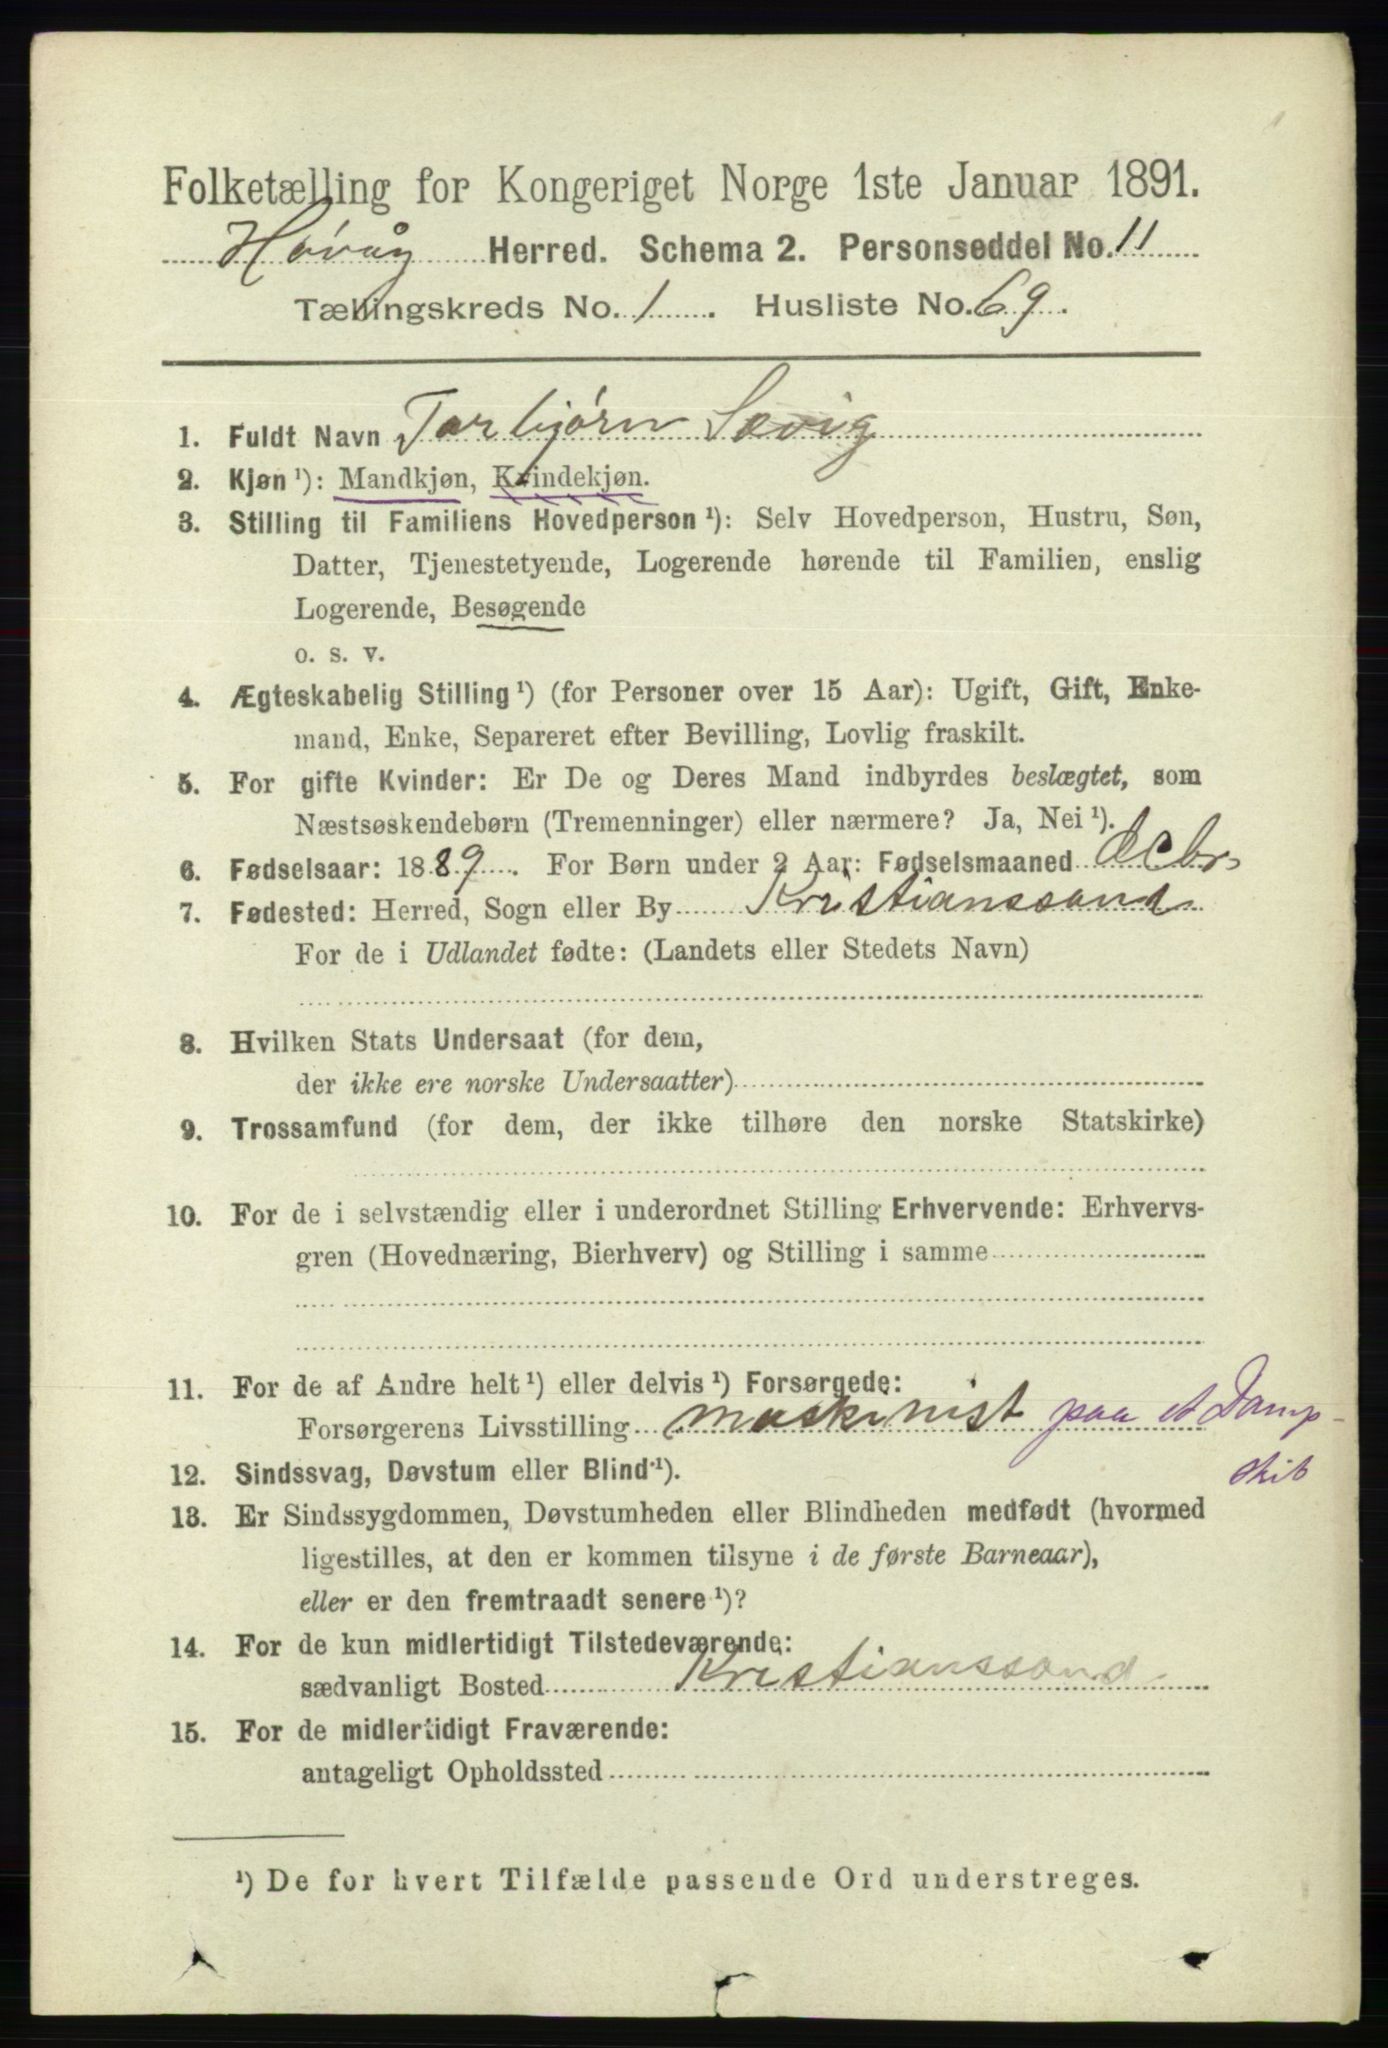 Folketælling for Kongeriget Norge 1ste Januar 1891.
Høvåg Herred. Schema 2. Personseddel No. 11
Tællingskreds No. 1. Husliste No. 69.
1. Fuldt Navn Torbjørn Sævig
2. Kjøn ¹): Mandkjøn, Kvindekjøn.
3. Stilling til Familiens Hovedperson ¹): Selv Hovedperson, Hustru, Søn,
Datter, Tjenestetyende, Logerende hørende til Familien, enslig
Logerende, Besøgende
o. s. v.
4. Ægteskabelig Stilling ¹) (for Personer over 15 Aar): Ugift, Gift, Enke-
mand, Enke, Separeret efter Bevilling, Lovlig fraskilt.
5. For gifte Kvinder: Er De og Deres Mand indbyrdes beslægtet, som
Næstsøskendebørn (Tremenninger) eller nærmere? Ja, Nei ¹).
6. Fødselsaar: 1889. For Børn under 2 Aar: Fødselsmaaned decbr
7. Fødested: Herred, Sogn eller By Kristianssand
For de i Udlandet fødte: (Landets eller Stedets Navn)
8. Hvilken Stats Undersaat (for dem,
der ikke ere norske Undersaatter)
9. Trossamfund (for dem, der ikke tilhøre den norske Statskirke)
10. For de i selvstændig eller i underordnet Stilling Erhvervende: Erhvervs-
gren (Hovednæring, Bierhverv) og Stilling i samme
11. For de af Andre helt ¹) eller delvis ¹) Forsørgede:
Forsørgerens Livsstilling maskinist paa et Damp-
skib
12. Sindssvag, Døvstum eller Blind ¹).
13. Er Sindssygdommen, Døvstumheden eller Blindheden medfødt (hvormed
ligestilles, at den er kommen tilsyne i de første Barneaar),
eller er den fremtraadt senere ¹)?
14. For de kun midlertidigt Tilstedeværende:
sædvanligt Bosted Kristianssand
15. For de midlertidigt Fraværende:
antageligt Opholdssted
¹) De for hvert Tilfælde passende Ord understreges.